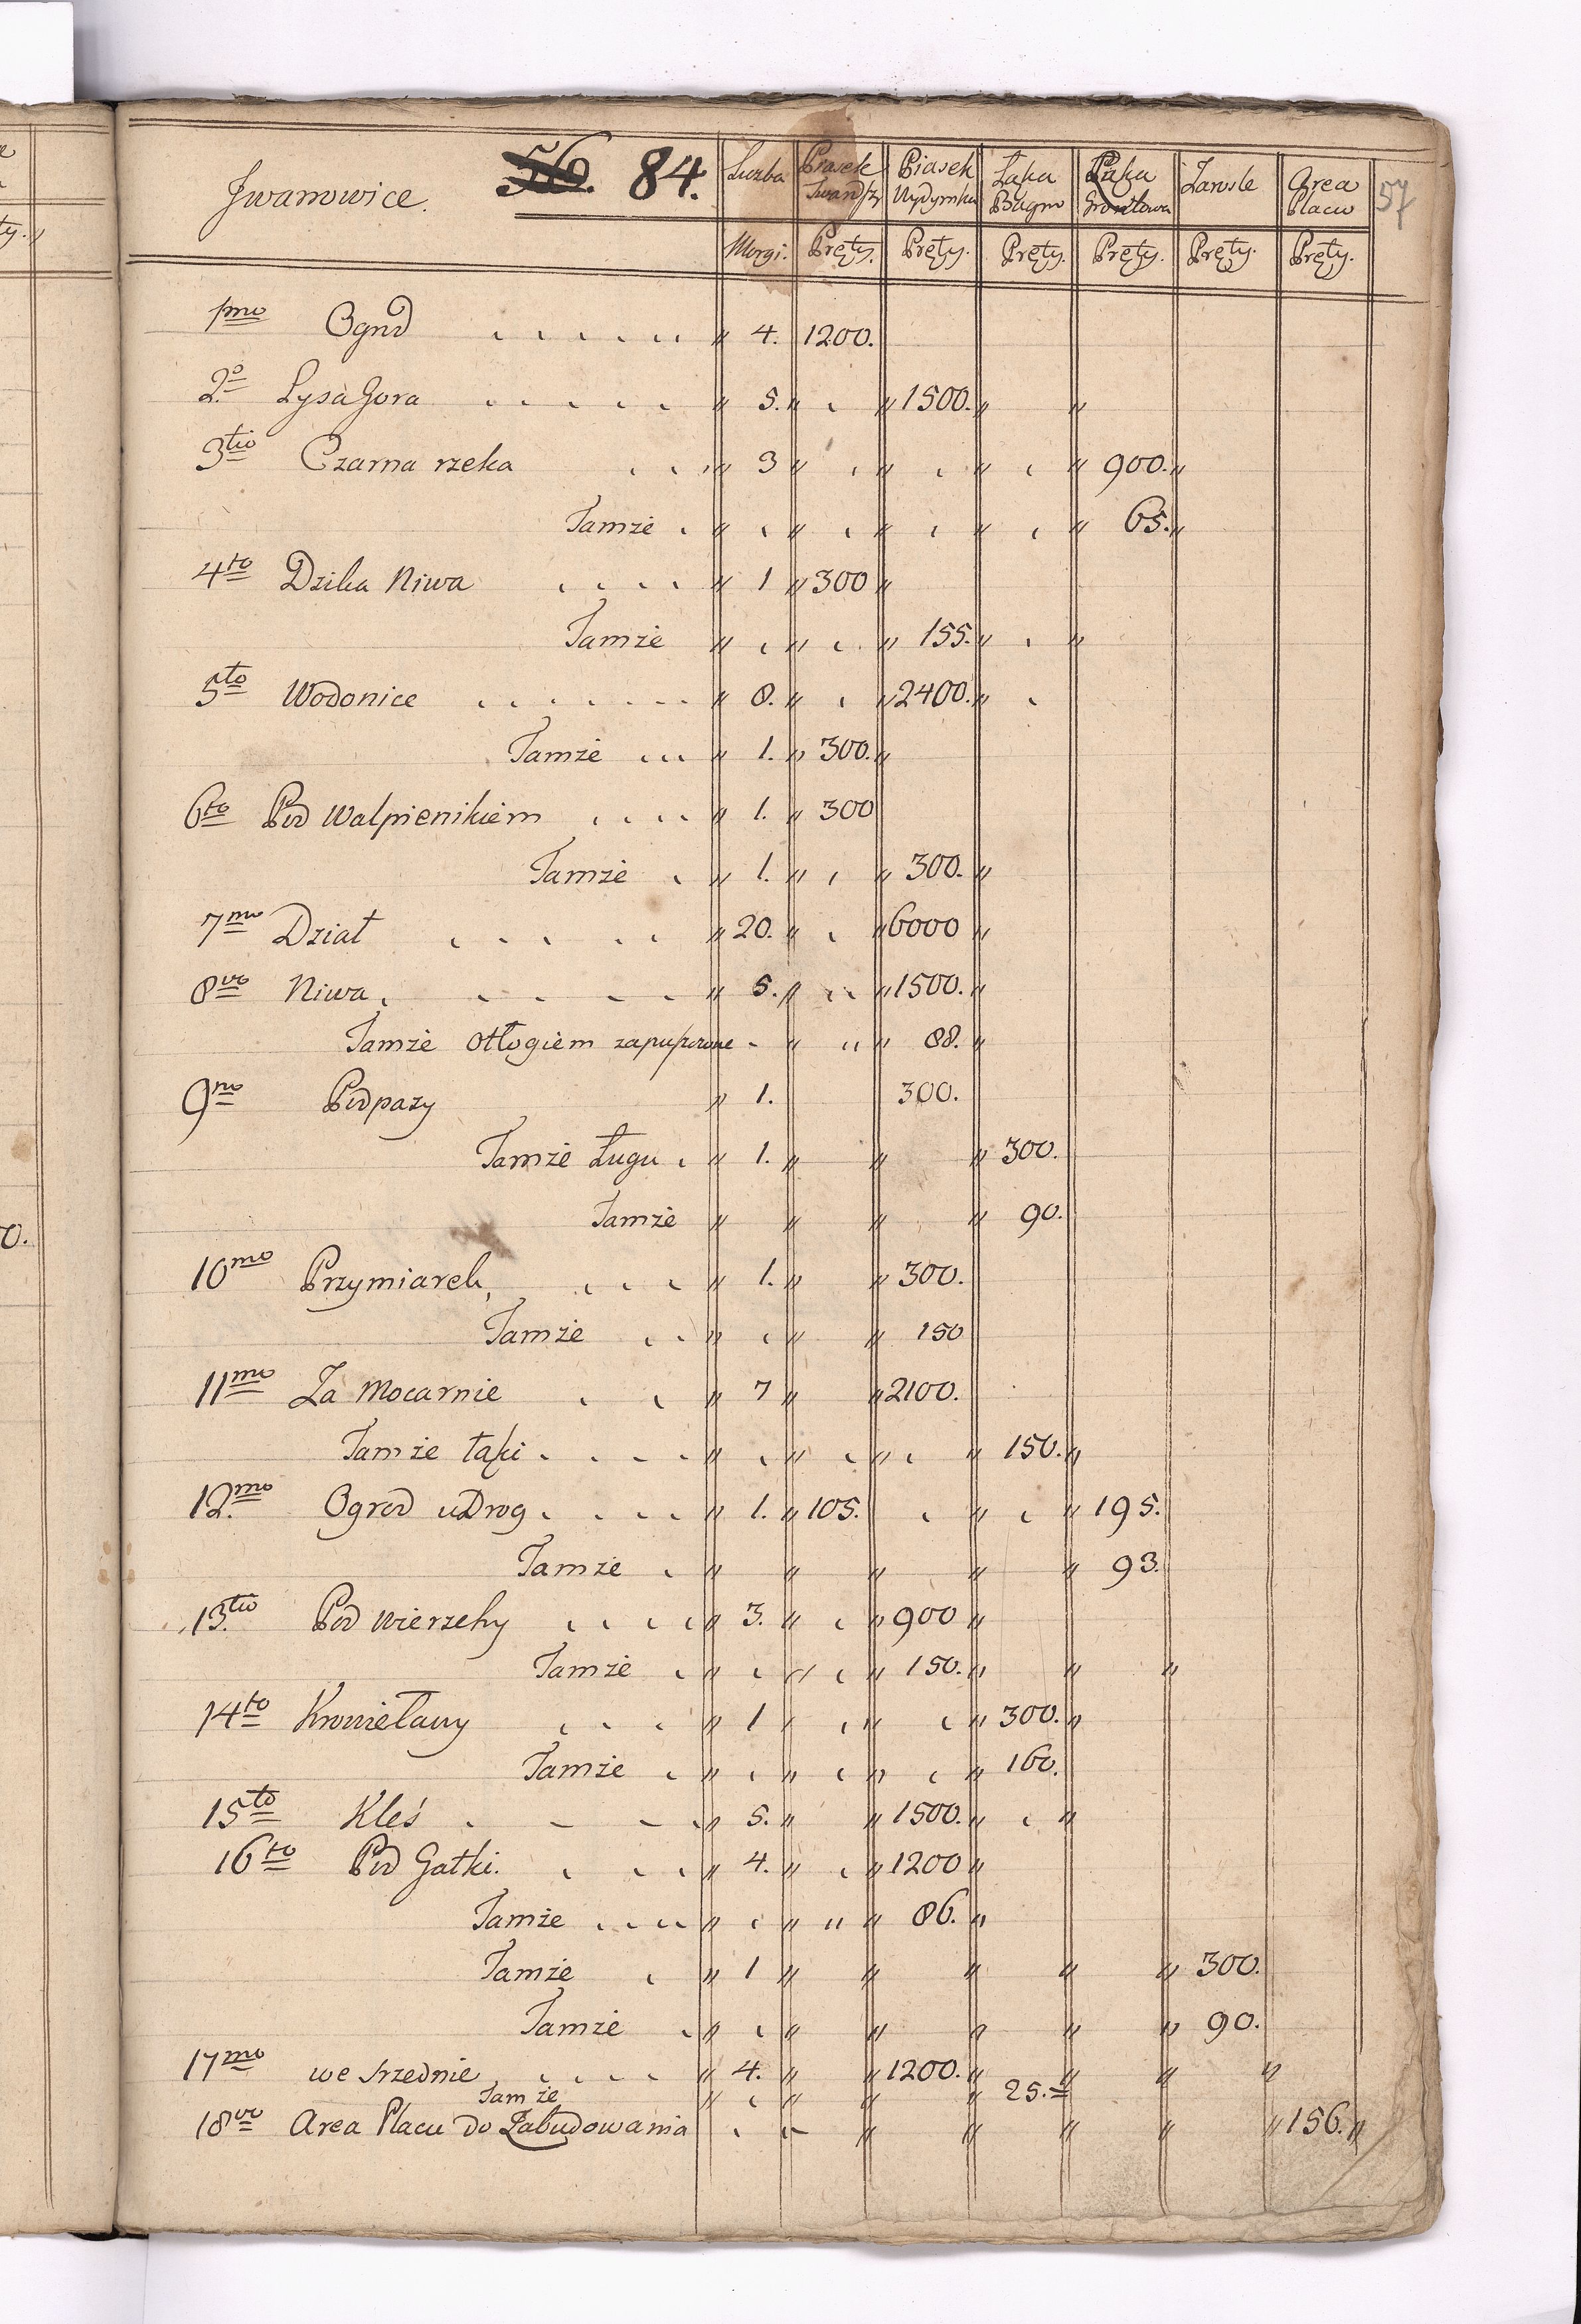 Jwanowice. 56. 84. Liczba Piasek Twardszy Piasek Wydymka Łąka Bagno Łąka Gruntowa Zarosle Area Placu 57
Morgi. Pręty. Pręty. Pręty. Pręty. Pręty. Pręty.
1mo Ogrod . . . . . " 4. 1200.
2o Lysa Gora . . . . . " 5. " . " 1500. " "
3tio Czarna rzeka . . . " 3 " . " . " . " 900. "
Tamże . " . " . " . " . " 65. "
4to Dzika Niwa . . . . " 1 " 300 "
Tamże " . " . " 155. " . "
5to Wodonice . . . . . . . " 8. " . " 2400. " .
Tamże . . . " 1. " 300. "
6to Pod Walpienikiem . . . . " 1. " 300
Tamże . " 1. " . " 300. "
7mo Dział . . . . . " 20. " . " 6000 "
8vo Niwa . . . . . . " 5. " . . " 1500. "
Tamże Otłogiem zapuszczone - " " " 88. "
9no Podpazy " 1. 300.
Tamże Ługu . " 1. " " " 300.
Tamże " " " " 90.
10mo Przymiarek, . . . " 1. " " 300.
Tamże . . " . " " 150
11mo Za Mocarnie . . " 7 " " 2100.
Tamże łąki . . . . " . " . " . " 150. "
12mo Ogrod u Drog . . . . " 1. " 105. . " . " 195.
Tamże . " " " " " 93.
13tio Pod Wierzchy . . . . " 3. " . " 900 "
Tamże . " . " . " 150. " " "
14to Krowieławy . . . " 1 " . " . " 300. "
Tamże . " . " . " . " 160.
15to Kleś . - - . " 5. " " 1500. " . "
16to Pod Gatki. . . . " 4. " . " 1200 "
Tamże . . . . " . " " " 86. "
Tamże . " 1 " " " " " 300.
Tamże . " . " " " " " 90.
17mo we srzednie . . . . " 4. " " 1200. " " " "
Tamże " . " " " 25. =
18vo Area Placu do Zabudowania . - " " " " " 156. "